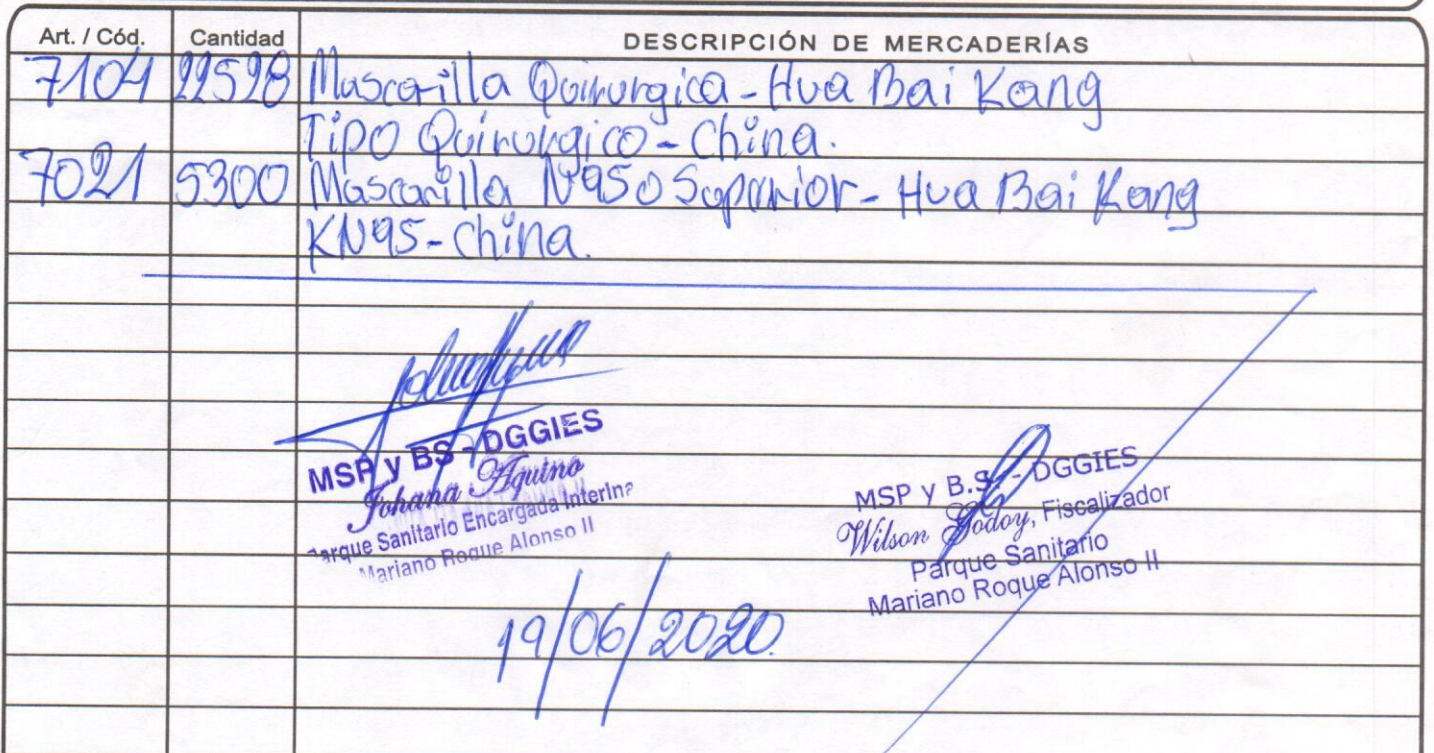 Art. / Cód. Cantidad DESCRIPCIÓN DE MERCADERÍAS
7104 22528 Mascarilla Quirurgica - Hua Bai Kang
Tipo Quirurgico - China.
7021 5300 Mascarilla N95 o Superior - Hua Bai Kang
KN95 - China.
MSP y BS - DGGIES
Johana Aquino
Parque Sanitario Encargada Interina
Mariano Roque Alonso II
MSP y B.S. - DGGIES
Wilson Godoy, Fiscalizador
Parque Sanitario
Mariano Roque Alonso II
19/06/2020.